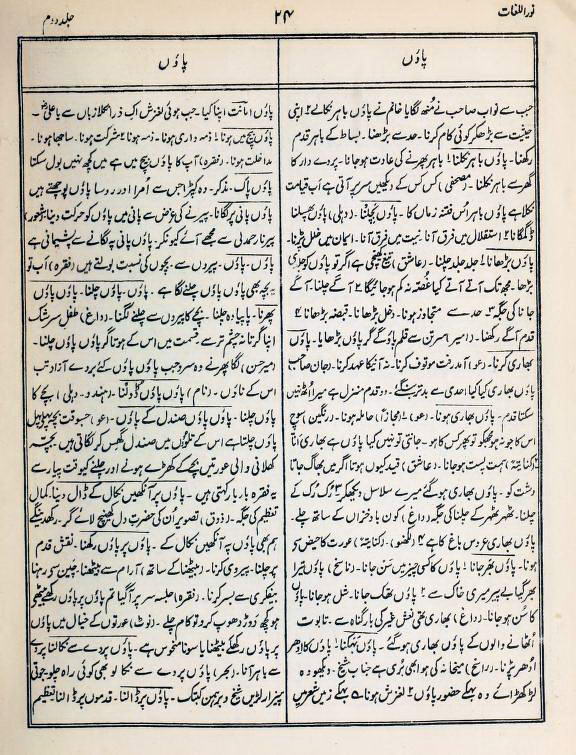 نور اللغات
۲۴
جلد دوم
پاؤں
جب سے نواب صاحب نے منھ لگایا خانم نے پاؤں باہر نکالے ۲ اپنی
حیثیت سے بڑھ کر کوئی کام کرنا۔ حد سے بڑھنا۔ بساط کے باہر قدم
رکھنا۔ پاؤں باہر نکلنا۔ باہر پھرنے کی عادت ہوجانا۔ پردے دار کا
گھر سے باہر نکلنا۔ (مصحفی) کس کس کے دیکھیں سر پر آتی ہے اب قیامت
نکلا ہے پاؤں باہر اُس فتنہ زماں کا۔ پاؤں بچلنا۔ (دہلی) پاؤں پھسلنا
ڈگمگانا ۲ استقلال میں فرق آنا۔ نیت میں فرق آنا۔ ایمان میں خلل پڑنا۔
پاؤں بڑھانا ۱ جلد جلد چلنا۔ (عاشق) تیغ کھینچی ہے اگر تو پاؤں کو جلدی
بڑھا۔ مجھ تک آتے آتے کیا غصّہ نہ کم ہو جائیگا ۲ آگے چلنا۔ آگے
جانا کی جگہ ۳ حد سے متجاوز ہونا۔ دخل بڑھانا۔ قبضہ بڑھانا ۴
قدم آگے رکھنا۔ (امیر) سر تن سے قلم پاؤں گر پاؤں بڑھایا۔ پاؤں
بھاری کرنا۔ (عو) آمد رفت موقوف کرنا۔ نہ آنیکا عہد کرنا۔ (جان صاحب)
پاؤں بھاری کیا کیا احدی سے بدتر بنگئے۔ دو قدم منزل ہے میرا اُٹھ نہیں
سکتا قدم۔ پاؤں بھاری ہونا۔ (عو) ۱ (مجازاً) حاملہ ہونا۔ (رنگین) سوچ
اس کا جو نہ مجھکو تو پھر کس کا ہو۔ جانتی تو نہیں کیا پاؤں ہے بھاری اَنّا
(کنایۃً) ہمت پست ہوجانا۔ (عاشق) قید کیوں ہوتا اگر میں بھاگ جاتا
دشت کو۔ پاؤں بھاری ہو گئے میرے سلاسل دیکھکر ۳ رُک رُک کے
چلنا۔ ٹھہر ٹھہر کے چلنا کی جگہ (داغ) کون باد خزاں کے ساتھ چلے۔
پاؤں بھاری عروس باغ کا ہے ۴ (لکھنؤ)۔ (کنایۃً) عورت کا حیض سے
ہونا۔ پاؤں بھر جانا ۱ پاؤں کا کسی چیز میں سَن جانا۔ (ناسخ) پاؤں تیرا
بھر گیا بے پیر میری خاک سے ۲ پاؤں تھک جانا۔ شل ہوجانا۔ پاؤں
کا سُن ہوجانا۔ (داغ) بھری نعش غیر کی بار گناہ سے۔ تابوت
اُٹھانے والوں کے پاؤں بھاری ہوگئے۔ پاؤں بہکنا ۱ پاؤں کا ادھر
اُدھر پڑنا۔ (راسخ) میخانہ کی ہوا بھی بُری ہے جناب شیخ۔ دیکھو وہ
لڑکھڑائے وہ بہکے حضور پاؤں ۲ لغزش ہونا
پاؤں
پاؤں امانت اپنا کیا۔ جب ہوئی لغزش اک ذرا نکلا زباں سے یا علی۔
پاؤں بیچ میں ہونا ۱ ذمہ داری ہونا۔ ذمہ ہونا ۲ شرکت ہونا۔ ساجھا ہونا۔
مداخلت ہونا۔ (فقرہ) آپ کا پاؤں بیچ میں ہے میں کچھ نہیں بول سکتا
پاؤں پاک۔ مذکر۔ وہ کپڑا جس سے اُمرا اور روسا پاؤں پوچھتے ہیں
پاؤں پانی پر لگانا۔ پیرنے کی غرض سے پانی میں پاؤں کو حرکت دینا (بحر)
پیرنا رحمدلی سے مجھے آئے کیونکر۔ پاؤں پانی پہ لگانے سے پشیمانی ہے
پاؤں پاؤں۔ پیروں سے۔ بچوں کی نسبت بولتے ہیں (فقرہ) اَب تو
یہ بچہ بھی پاؤں پاؤں چلنے لگا ہے۔ پاؤں پاؤں چلنا۔ پاؤں پاؤں
پھرنا۔ پاپیادہ چلنا۔ بچے کا پیروں سے چلنے لگنا۔ (داغ) طفل سرشک
اپنا گرنا نہ چشم تر سے قسمت میں اس کے ہوتا گر پاؤں پاؤں چلنا۔
(میر حسن) لگا پھرنے وہ سرو جب پاؤں پاؤں کئے بردے آزاد تب
اس کے ناؤں۔ (نام) پاؤں پاؤں ڈولنا۔ (ہندو۔ دہلی) بچے کا
پاؤں چلنا۔ پاؤں پاؤں صندل کے پاؤں۔ (عو) جسوقت بچہ پہلی پہل
پاؤں چلتا ہے اس کے تلوؤں میں صندل گھِس کر لگاتی ہیں۔ بچہ
کھلانی والی عورتیں بچے کے کھڑے ہونے اور چلنے کیوقت پیار سے
یہ فقرہ بار بار کہتی ہیں۔ پاؤں پر آنکھیں نکال کے ڈال دینا۔ کمال
تعظیم کی جگہ۔ (ذوق) تصویر اُن کی حضرت دل کھینچ لائے گر۔ رکھ دینگے
ہم بھی پاؤں پہ آنکھیں نکال کے۔ پاؤں پر پاؤں رکھنا۔ نقش قدم
پر چلنا۔ پیروی کرنا۔ (بیٹھنا کے ساتھ) آرام سے بیٹھنا۔ چین سے رہنا
بیفکری سے بسر کرنا۔ (فقرہ) جلسہ سر پر آ گیا تم پاؤں پر پاؤں رکھے بیٹھی
ہو کچھ دوڑ دھوپ کرو تو کام چلے۔ (نوٹ) عورتوں کے خیال میں پاؤں
پر پاؤں رکھکے بیٹھنا یا سونا منحوس ہے۔ پاؤں پردے سے نکالنا پردے
سے باہر آنا۔ (بحر) پاؤں پردے سے نکالو بھی کوئی راہ چلو
پیزار لڑیں شیخ و برہمن کبتک۔ پاؤں پر ڈالنا۔ قدموں پر ڈالنا تعظیم